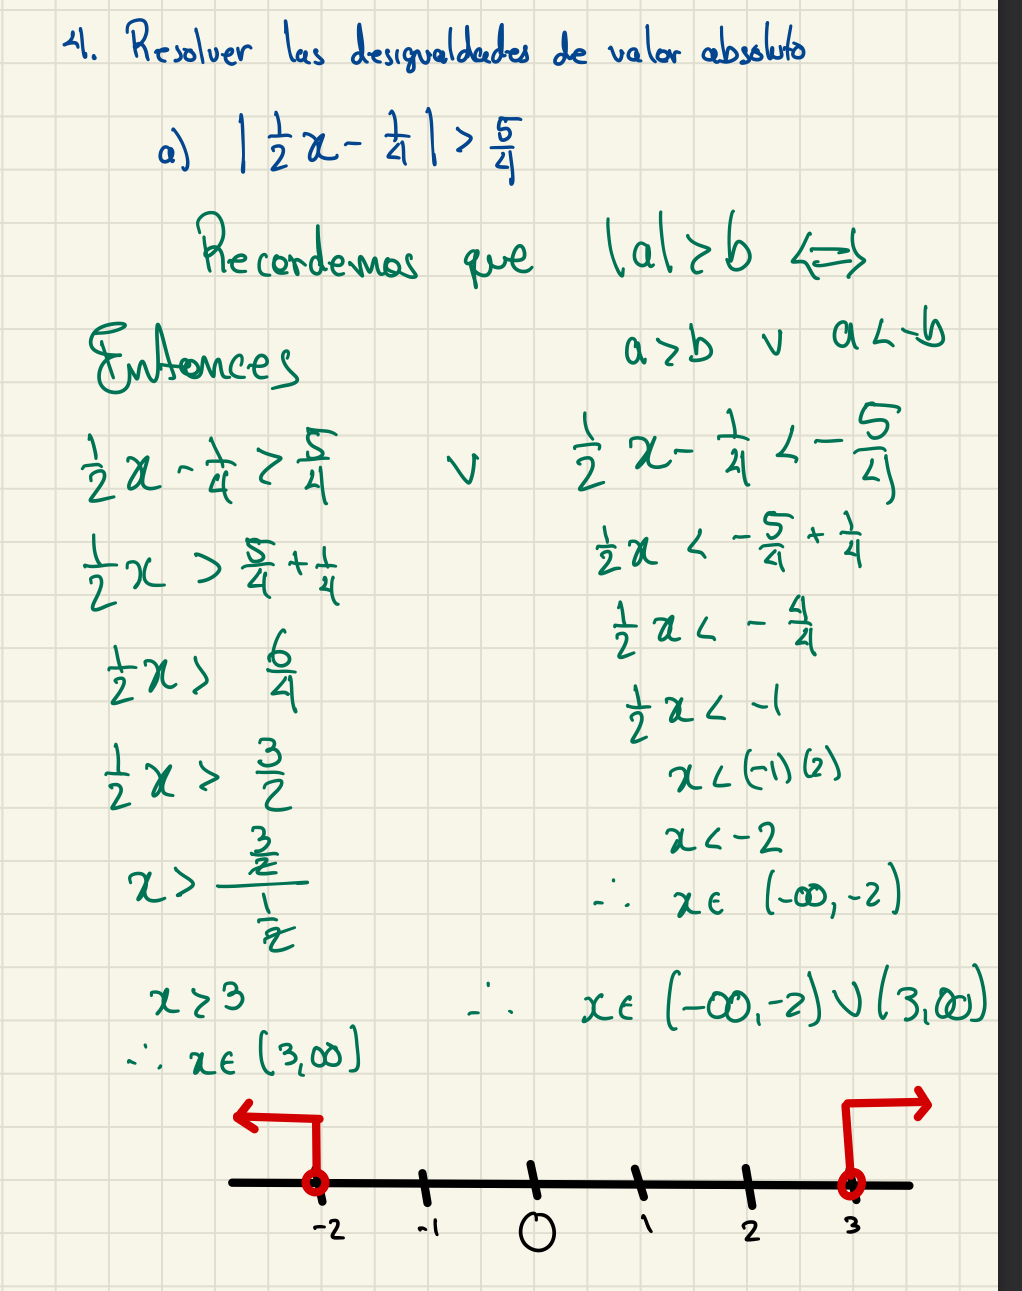 4. Resolver las desigualdades de valor absoluto
a) |1/2 x - 1/4| > 5/4
Recordemos que |a| > b ⟺
a > b ∨ a < -b
Entonces
1/2 x - 1/4 > 5/4 ∨ 1/2 x - 1/4 < - 5/4
1/2 x > 5/4 + 1/4
1/2 x < - 5/4 + 1/4
1/2 x > 6/4
1/2 x < - 4/4
1/2 x < -1
1/2 x > 3/2
x < (-1)(2)
x < -2
x > (3/2)/(1/2)
∴ x ∈ (-∞, -2)
x > 3
∴ x ∈ (-∞, -2) ∪ (3, ∞)
∴ x ∈ (3, ∞)
-2 -1 0 1 2 3